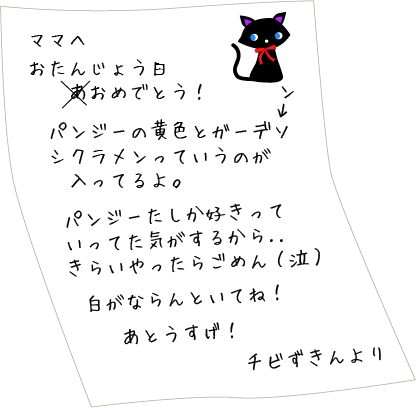 ママへ
おたんじょう日
あおめでとう!
ン
↓
パンジーの黄色とガーデソ
シクラメンっていうのが
入ってるよ。
パンジーたしか好きって
いってた気がするから..
きらいやったらごめん(泣)
白がならんといてね!
あとうすげ!
チビずきんより